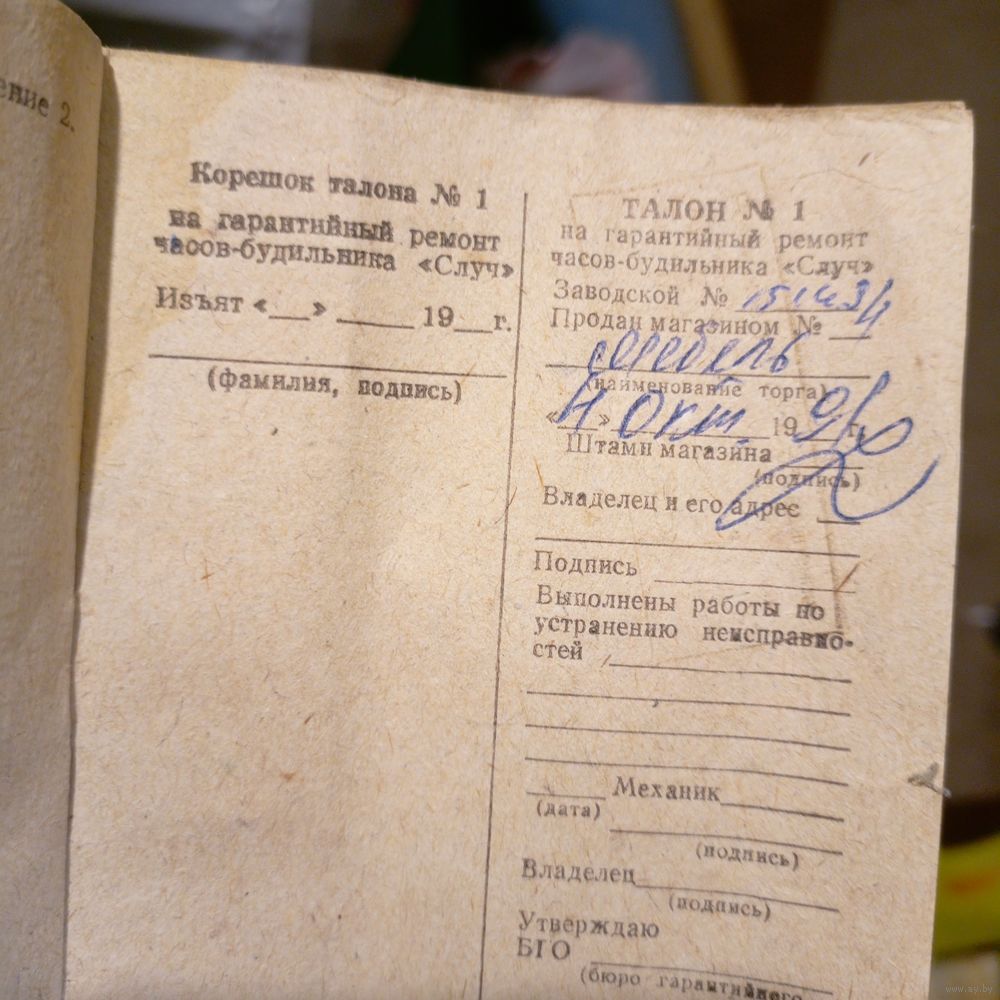 ение 2.
Корешок талона № 1
на гарантийный ремонт
часов-будильника «Случ»
Изъят «__» _____ 19__г.
(фамилия, подпись)
ТАЛОН № 1
на гарантийный ремонт
часов-будильника «Случ»
Заводской №
Продан магазином №
(наименование торга)
« » Окт 19 г.
Штамп магазина
(подпись)
Владелец и его адрес
Подпись
Выполнены работы по
устранению неисправно-
стей
Механик
(дата)
(подпись)
Владелец
(подпись)
Утверждаю
БГО
(бюро гарантийного
www.ay.by